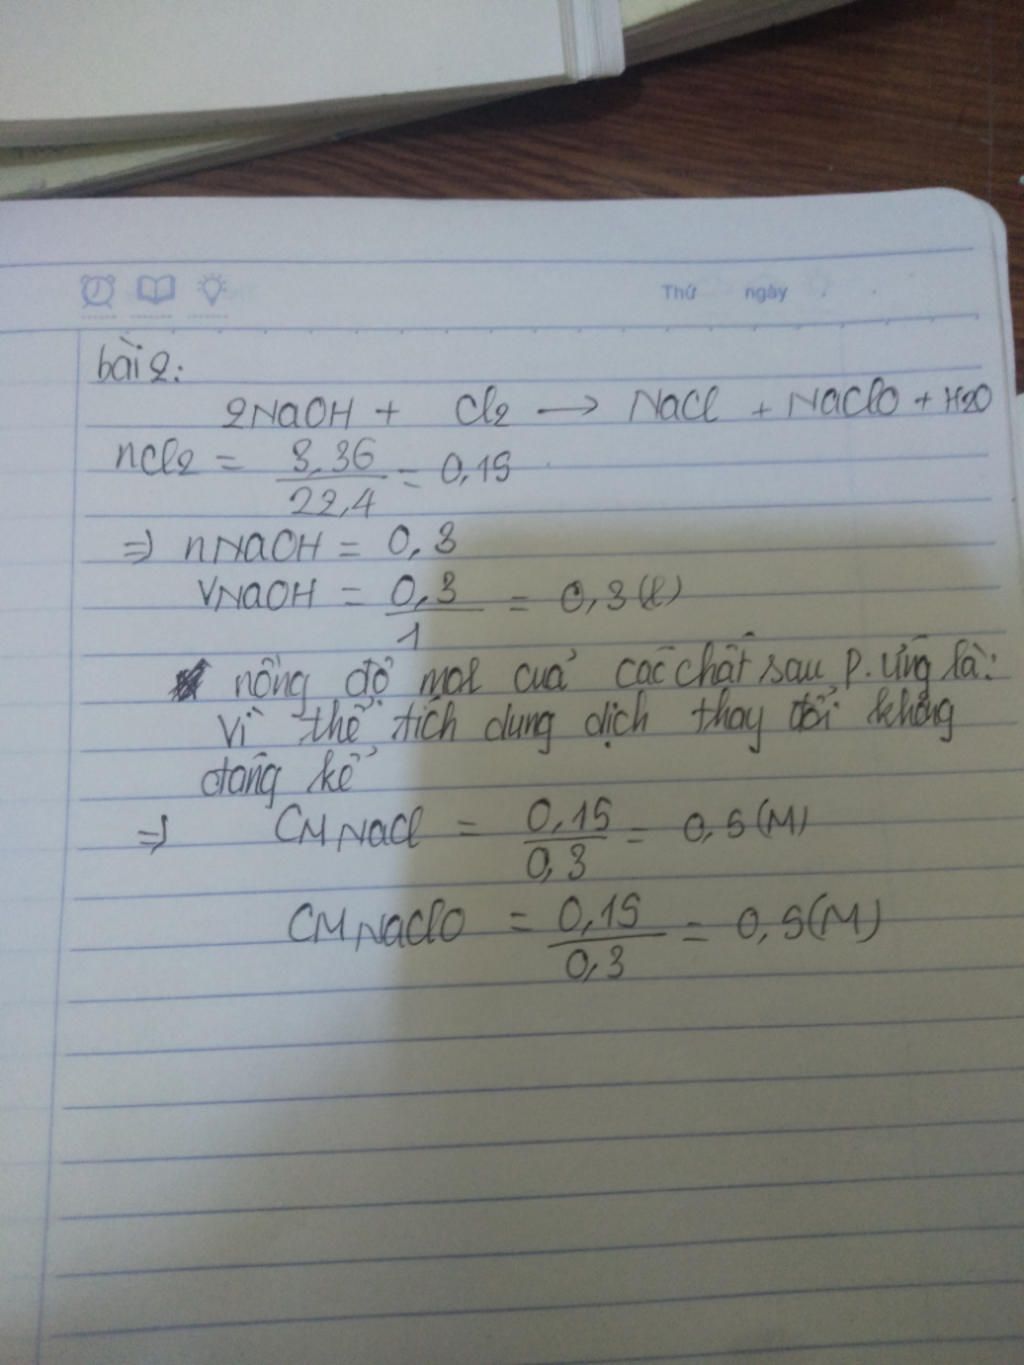 Thứ ngày
bài 2:
2NaOH + Cl2 → NaCl + NaClO + H2O
nCl2 = 3,36/22,4 = 0,15
⇒ nNaOH = 0,3
VNaOH = 0,3/1 = 0,3(l)
nồng độ mol của các chất sau p.ứng là:
Vì thể tích dung dịch thay đổi không
đáng kể
⇒ CM NaCl = 0,15/0,3 = 0,5(M)
CM NaClO = 0,15/0,3 = 0,5(M)